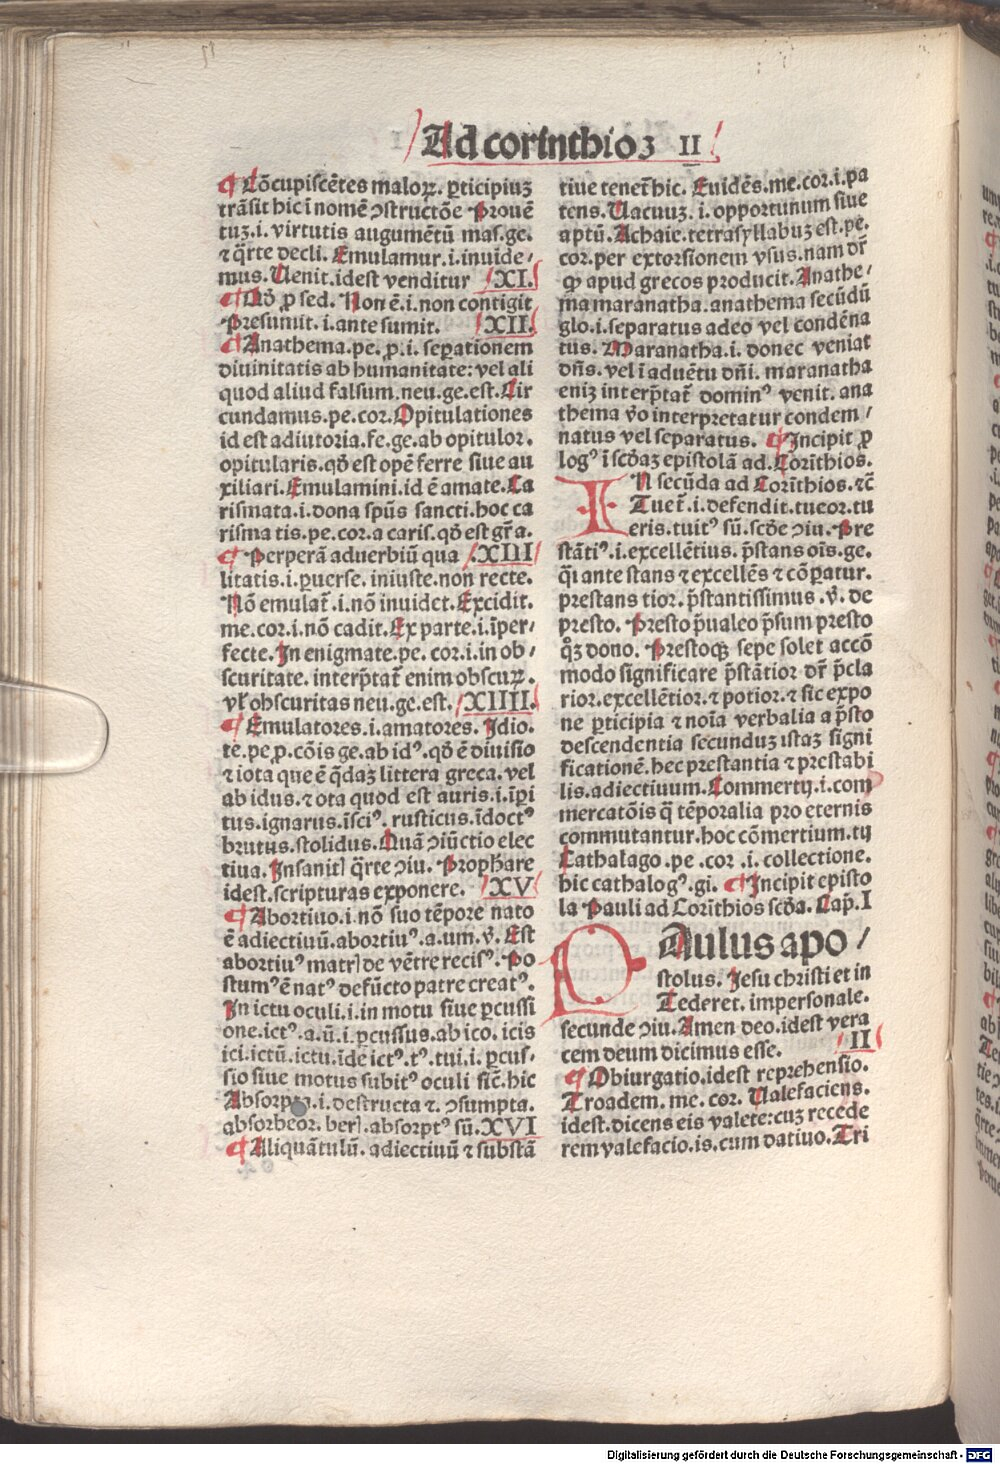 Ad corinthioꝫ II
¶ Cōcupiſcētes maloꝝ. ꝑticipiuꝫ
trāſit hic ī nomē ꝯſtructōe Prouē
tuꝫ.i. virtutis augumētū maſ.ge.
⁊ q̄rte decli. Emulamur.i.inuide⸗
mus. Uenit.idest venditur XI.
¶ Qd̓ ꝓ sed. Non ē.i.non contigit
Presumit.i.ante sumit. XII.
¶ Anathema.pe.ꝓ.i. seꝑationem
diuinitatis ab humanitate: vel ali
quod aliud falsum.neu.ge.est. Cir
cundamus.pe.cor. Opitulationes
id est adiutoria.fe.ge.ab opitulor.
opitularis.qd̓ est opē ferre siue au
xiliari. Emulamini.id ē amate. Ca
rismata.i.dona spūs sancti.hoc ca
risma tis.pe.cor.a caris.qd̓ est gr̄a.
¶ Perperā aduerbiū qua XIII
litatis.i.ꝑuerse. iniuste.non recte.
Nō emulat̄.i.nō inuidet. Excidit.
me.cor.i.nō cadit. Ex parte.i.īper⸗
fecte. In enigmate.pe.cor.i.in ob⸗
scuritate. interp̄tat̄ enim obscuꝝ.
vl̓ obscuritas neu.ge.est. XIIII.
¶ Emulatores.i.amatores. Idio⸗
te.pe.ꝓ.cōis ge.ab idꝰ.qd̓ ē diuisio
⁊ iota que ē q̄daꝫ littera greca. vel
ab idus.⁊ ota quod est auris.i.īꝑi
tus.ignarus.īsciꝰ. rusticus.īdoctꝰ
brutus.stolidus. Quā ꝯiūctio elec
tiua. Insanit] q̄rte ꝯiu. Prophare
idest.scripturas exponere. XV
¶ Abortiuo.i.nō suo tēpore nato
ē adiectiuū.abortiuꝰ.a.um.v̄. Est
abortiuꝰ matr] de vētre recisꝰ. Po
stumꝰ ē natꝰ defūcto patre creatꝰ.
In ictu oculi.i.in motu siue ꝑcussi
one.ictꝰ.a.ū.i.ꝑcussus.ab ico. icis
ici.ictū.ictu.īde ictꝰ.tꝰ.tui.i.ꝑcus⸗
sio siue motus subitꝰ oculi sic̄.hic
Absorpta.i.destructa ⁊. ꝯsumpta.
absorbeor. ber].absorptꝰ sū. XVI
¶ Aliquātulū. adiectiuū ⁊ substā
tiue tenet̄ hic. Euidēs.me.cor.i.pa
tens. Uacuuꝫ.i.opportunum siue
aptū. Achaie.tetrasyllabuꝫ est.pe.
cor.per extorsionem vsus.nam dr̄
ꝙ apud grecos producit. Anathe⸗
ma maranatha.anathema secūdū
glo.i.separatus adeo vel condēna
tus. Maranatha.i. donec veniat
dn̄s. vel ī aduētu dn̄i. maranatha
eniꝫ interp̄tat̄ dominꝰ venit. ana
thema v̓o interpretatur condem⸗
natus vel separatus. ¶ Incipit ꝓ
logꝰ ī scd̓aꝫ epistolā ad. Corīthios.
IN secūda ad Corīthios.⁊c̄
Tuet̄.i.defendit.tueor.tu
eris.tuitꝰ sū.scd̓e ꝯiu. Pre
stātiꝰ.i.excellētius.p̄stans oīs.ge.
q̄i ante stans ⁊ excellēs ⁊ cōꝑatur.
prestans tior. p̄stantissimus.v̄. de
presto. Presto p̄ualeo p̄sum presto
q̄ꝫ dono. Prestoqꝫ sepe solet accō
modo significare p̄stātior dr̄ p̄cla
rior.excellētior.⁊ potior.⁊ sic expo
ne ꝑticipia ⁊ noīa verbalia a p̄sto
descendentia secunduꝫ istaꝫ signi
ficationē.hec prestantia ⁊ prestabi
lis.adiectiuum. Commertij.i.com
mercatōis q̄ tēporalia pro eternis
commutantur.hoc cōmertium.tij
Cathalago.pe.cor.i.collectione.
hic cathalogꝰ.gi. ¶ Incipit episto
la Pauli ad Corīthios scd̓a. Cap̄. I
PAulus apo⸗
stolus. Jesu christi et in
Tederet. impersonale.
secunde ꝯiu. Amen deo.idest vera
cem deum dicimus esse. II
¶ Obiurgatio.idest reprehensio.
Troadem.me.cor. Ualefaciens.
idest.dicens eis valete:cuꝫ recede
rem valefacio.is.cum datiuo. Tri
Digitalisierung gefördert durch die Deutsche Forschungsgemeinschaft - DFG